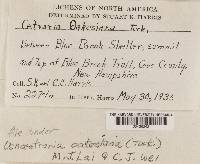 LICHENS OF NORTH AMERICA
DETERMINED BY STUART K. HARRIS
Cetraria Oakesiana Tuck.
Between Blue Brook Shelter, summit
and Top of Blue Brook Trail, Coos County,
New Hampshire
Coll. S.K. and C.C. Harris
No. Date May 30, 193
file under
(Tuck.)
M. J. Lai & C. J. Wei